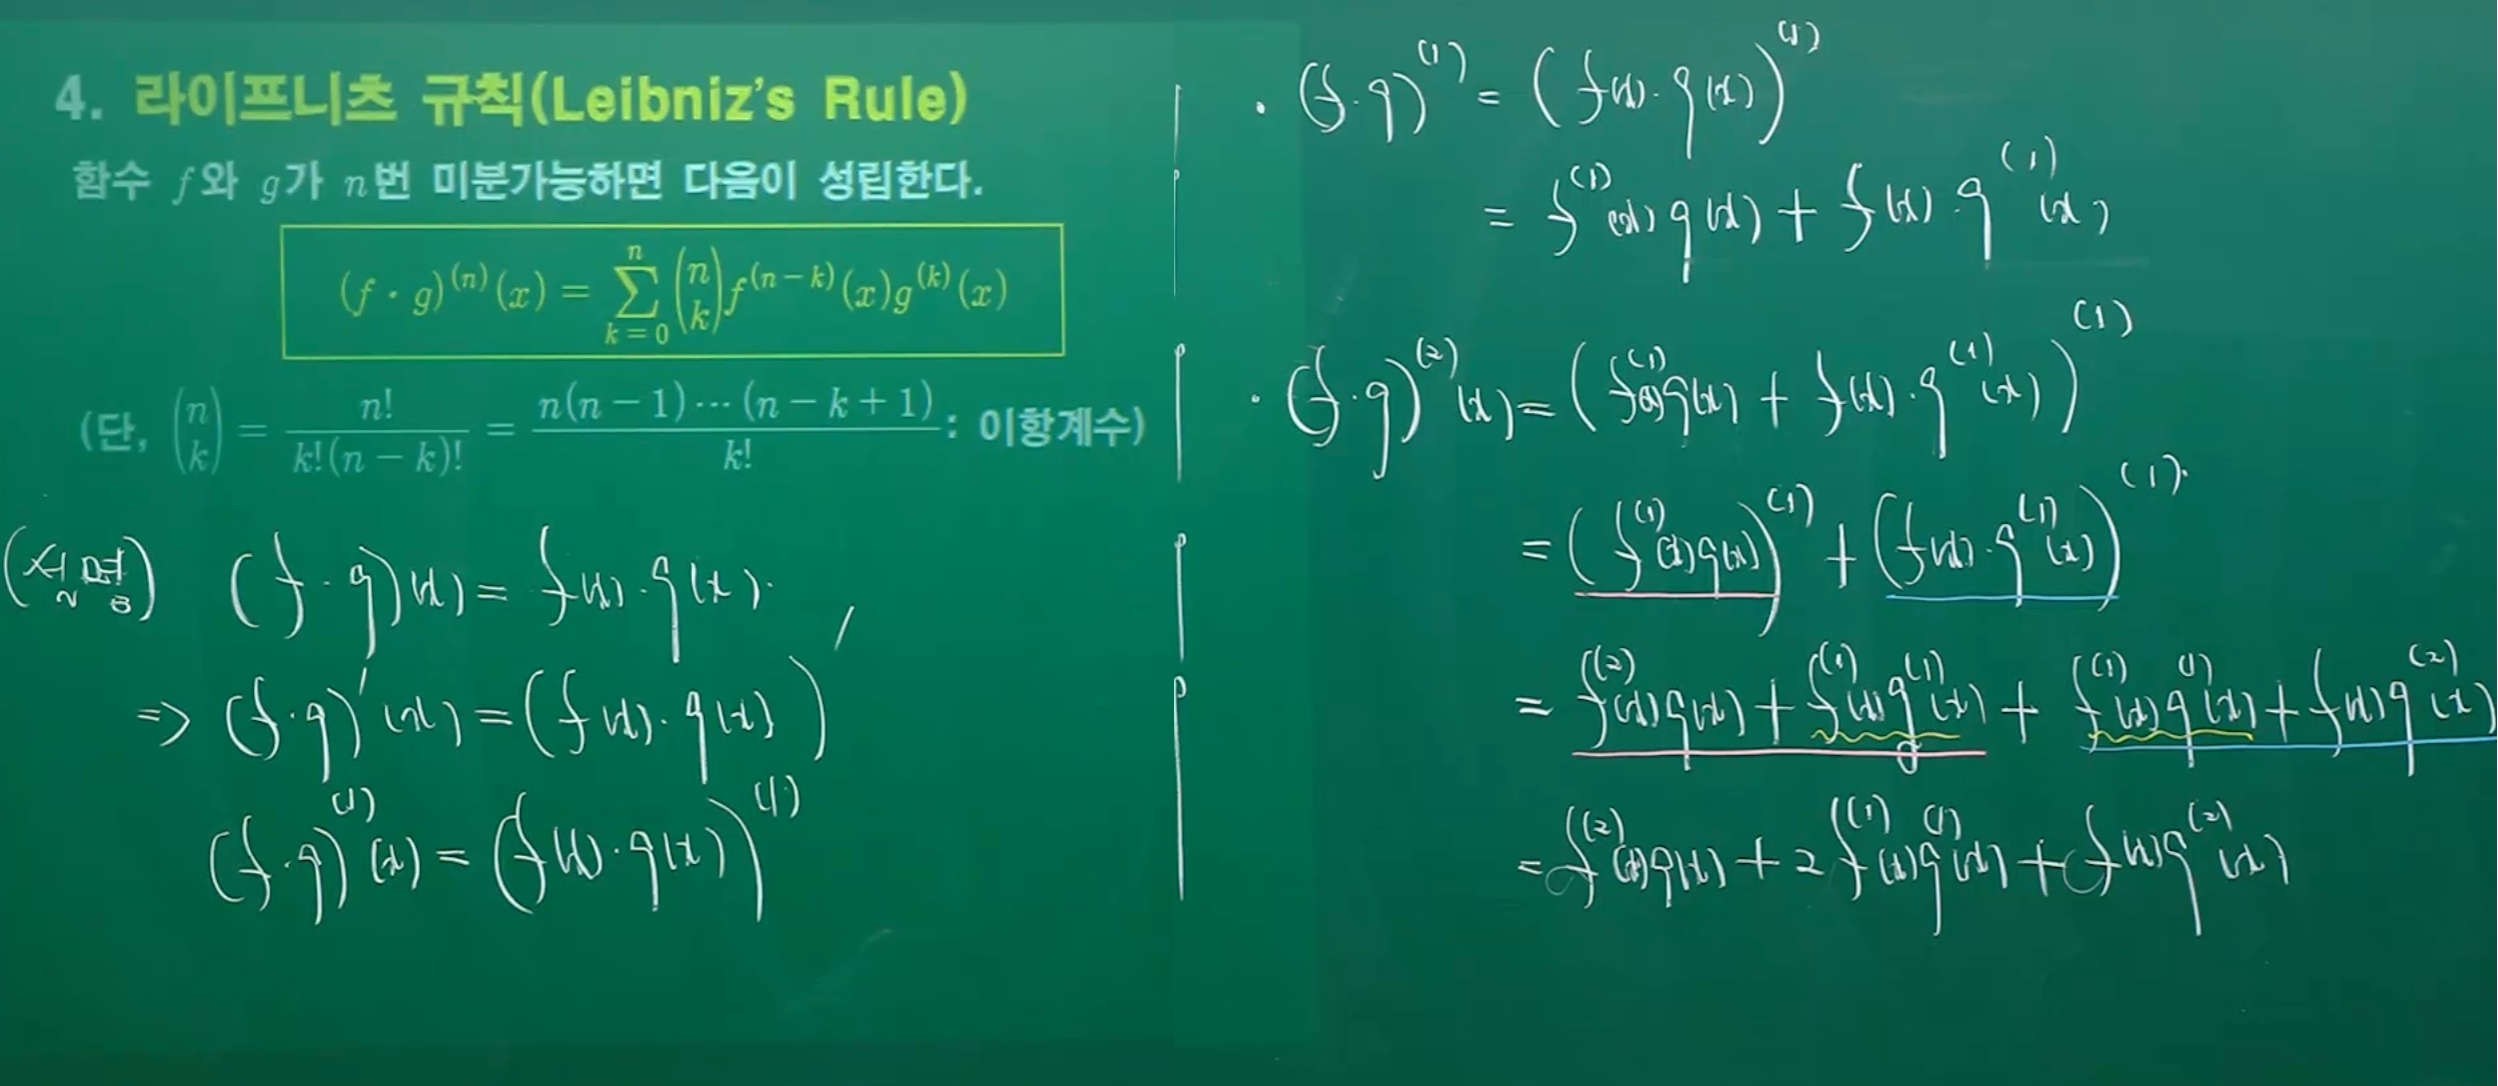 4. 라이프니츠 규칙(Leibniz's Rule)
함수 f와 g가 n번 미분가능하면 다음이 성립한다.
(f · g)^{(n)}(x) = \sum_{k=0}^{n} \binom{n}{k} f^{(n-k)}(x)g^{(k)}(x)
(단, \binom{n}{k} = \frac{n!}{k!(n-k)!} = \frac{n(n-1)⋯(n-k+1)}{k!} : 이항계수)
(설명) (f·g)(x) = f(x)·g(x).
⇒ (f·g)'(x) = (f(x)·g(x))'
(f·g)^{(1)}(x) = (f(x)·g(x))^{(1)}
· (f·g)^{(1)} = (f(x)·g(x))^{(1)}
= f^{(1)}(x)g(x) + f(x)·g^{(1)}(x)
· (f·g)^{(2)}(x) = (f^{(1)}(x)g(x) + f(x)·g^{(1)}(x))^{(1)}
= (f^{(1)}(x)g(x))^{(1)} + (f(x)·g^{(1)}(x))^{(1)}
= f^{(2)}(x)g(x) + f^{(1)}(x)g^{(1)}(x) + f^{(1)}(x)g^{(1)}(x) + f(x)g^{(2)}(x)
= f^{(2)}(x)g(x) + 2f^{(1)}(x)g^{(1)}(x) + f(x)g^{(2)}(x)